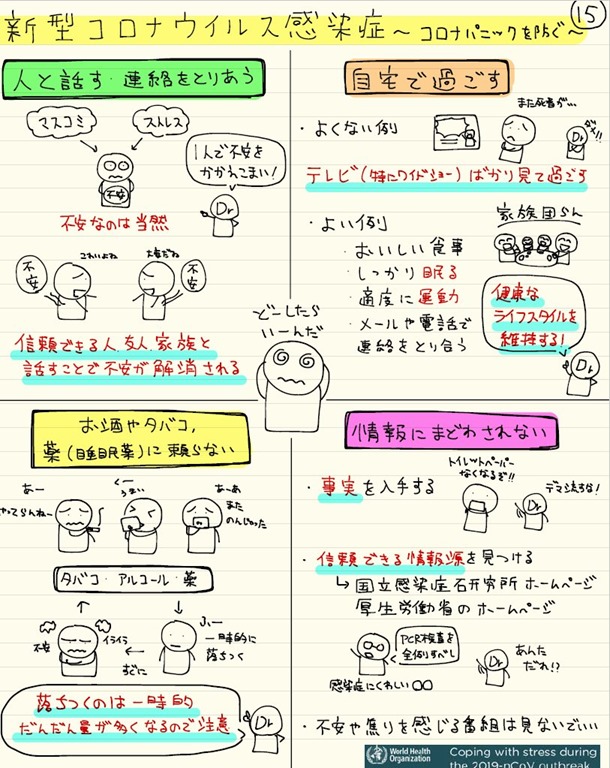 新型コロナウイルス感染症～コロナパニックを防ぐ～
15
人と話す・連絡をとりあう
マスコミ
ストレス
不安
1人で不安を
かかえこまい!
Dr
不安なのは当然
不安
これいよね
大変だね
不安
信頼できる人、友人、家族と
話すことで不安が解消される
自宅で過ごす
・よくない例
また死者が…
ダメ!!
Dr
テレビ(特にワイドショー)ばかり見て過ごす
・よい例
家族団らん
・おいしい食事
・しっかり眠る
・適度に運動
・メールや電話で
連絡をとり合う
健康な
ライフスタイルを
維持する!
Dr
どーしたら
いーんだ
お酒やタバコ,
薬(睡眠薬)に頼らない
あー
やってらんねー
くーっ
うまい
あーあ
また
のんじゃった
タバコ・アルコール・薬
不安
イライラ
すぐに
ふぃー
一時的に
落ちつく
落ちつくのは一時的
だんだん量が多くなるので注意
Dr
情報にまどわされない
・事実を入手する
トイレットペーパー
なくなるぞ!!
デマ流すな!
Dr
・信頼できる情報源を見つける
↳国立感染症研究所ホームページ
厚生労働省のホームページ
PCR検査を
全例すべし
感染症にくわしい〇〇
あんた
だれ!?
Dr
・不安や焦りを感じる番組は見ないでいい
World Health
Organization
Coping with stress during
the 2019-nCoV outbreak